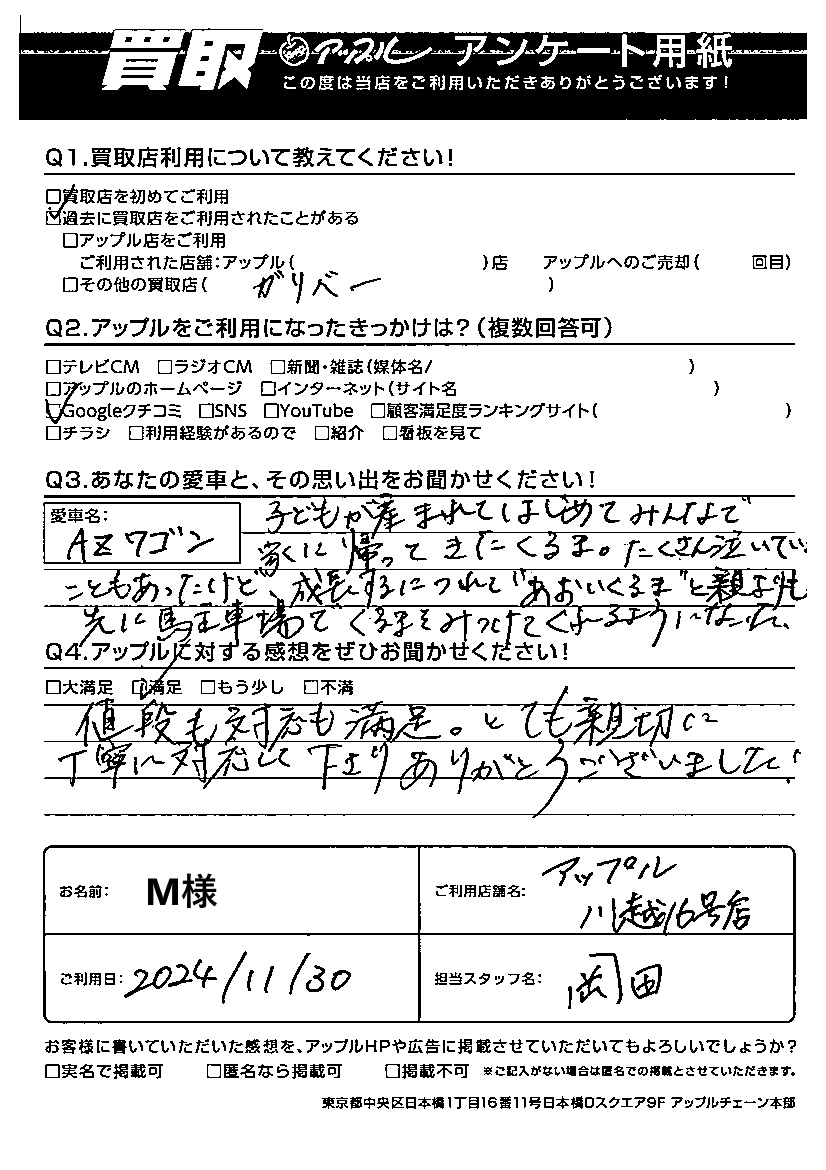 買取 アップル アンケート用紙
この度は当店をご利用いただきありがとうございます!
Q1.買取店利用について教えてください!
□買取店を初めてご利用
☑過去に買取店をご利用されたことがある
□アップル店をご利用
ご利用された店舗:アップル( )店 アップルへのご売却( 回目)
□その他の買取店( ガリバー )
Q2.アップルをご利用になったきっかけは?(複数回答可)
□テレビCM □ラジオCM □新聞・雑誌(媒体名/ )
□アップルのホームページ □インターネット(サイト名 )
☑Googleクチコミ □SNS □YouTube □顧客満足度ランキングサイト( )
□チラシ □利用経験があるので □紹介 □看板を見て
Q3.あなたの愛車と、その思い出をお聞かせください!
愛車名:
AZワゴン
子どもが産まれてはじめてみんなで
家に帰ってきたくるま。たくさん泣いてい
こともあったけど、成長するにつれて"あおいくるま"と親よりも
先に駐車場でくるまをみつけてくれるようになった。
Q4.アップルに対する感想をぜひお聞かせください!
□大満足 ☑満足 □もう少し □不満
値段も対応も満足。とても親切に
丁寧に対応して下さりありがとうございました!
お名前: M様
ご利用店舗名: アップル
川越16号店
ご利用日: 2024/11/30
担当スタッフ名: 岡田
お客様に書いていただいた感想を、アップルHPや広告に掲載させていただいてもよろしいでしょうか?
□実名で掲載可 □匿名なら掲載可 □掲載不可 ※ご記入がない場合は匿名での掲載とさせていただきます。
東京都中央区日本橋1丁目16番11号日本橋Dスクエア9F アップルチェーン本部